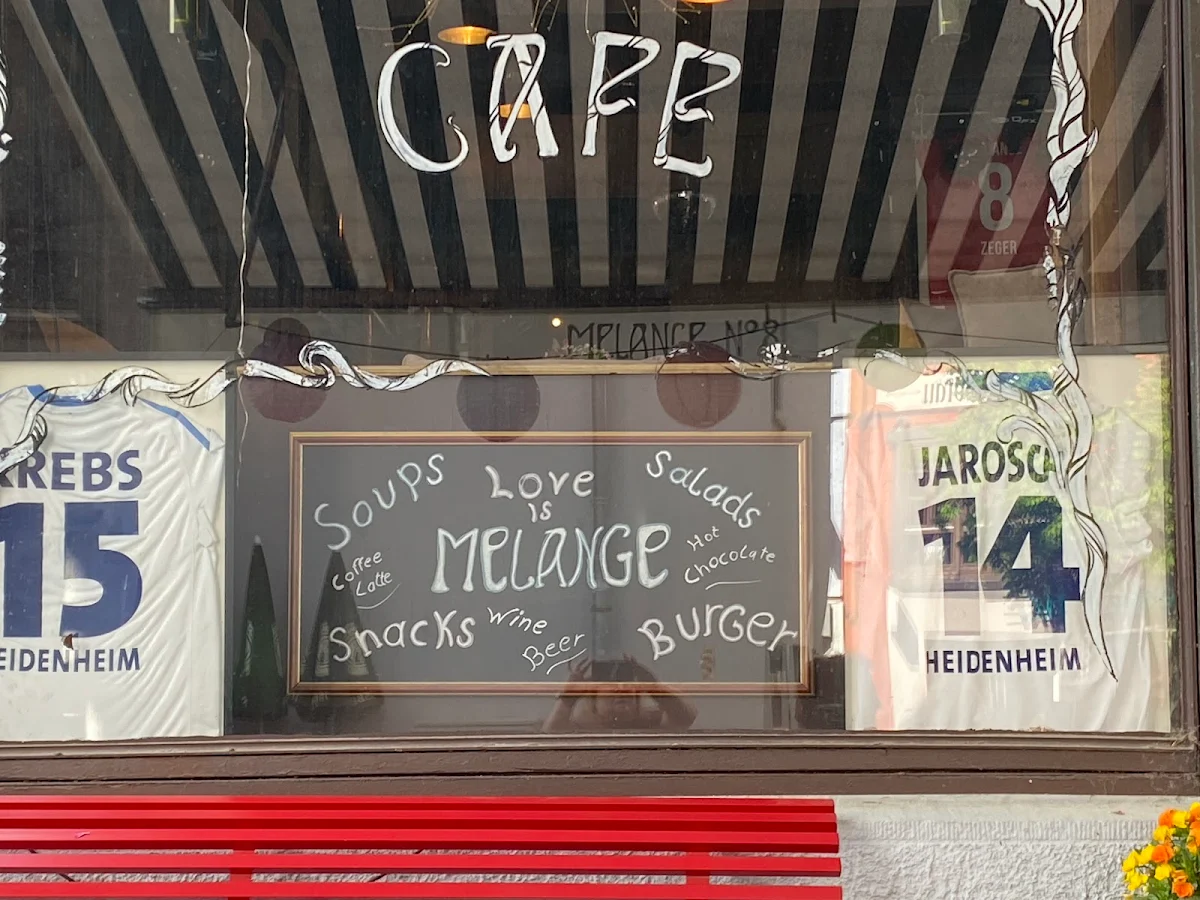 CAFE
8
ZEGER
MELANGE Nº8
KREBS
15
HEIDENHEIM
Soups
Love
is
MELANGE
Salads
Coffee
Latte
Hot
Chocolate
Snacks
Wine
Beer
BURGER
JAROSCH
14
HEIDENHEIM